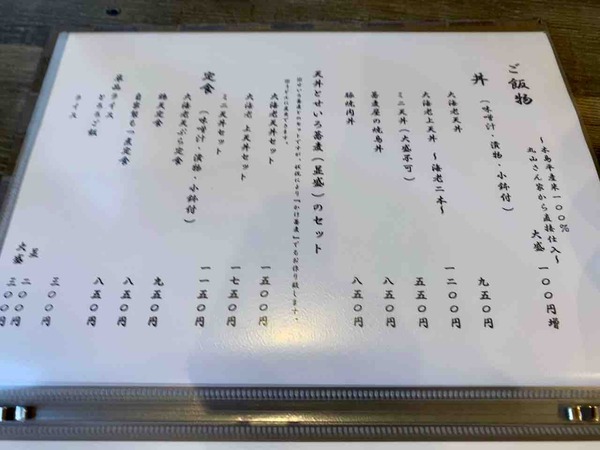 ご飯物
産米一〇〇%
丸山さん家から直接仕入〜
大盛 一〇〇円増
丼 (味噌汁・漬物・小鉢付)
大海老天丼 九五〇円
大海老上天丼 〜海老二本〜 一二〇〇円
ミニ天丼(大盛不可) 五五〇円
蕎麦屋の焼鳥丼 八五〇円
豚焼肉丼 八五〇円
天丼とせいろ蕎麦(並盛)のセット
せいろ蕎麦とのセットですが、状況により『かけ蕎麦』でもお作り致します。
大海老天丼セット 一五〇〇円
大海老 上天丼セット 一七五〇円
ミニ天丼セット 一一五〇円
定食 (味噌汁・漬物・小鉢付)
大海老天ぷら定食 九五〇円
鶏天定食 八五〇円
自家製もつ煮定食 八五〇円
単品ライス
とろろご飯 三〇〇円
ライス 並 二〇〇円
大盛 三〇〇円